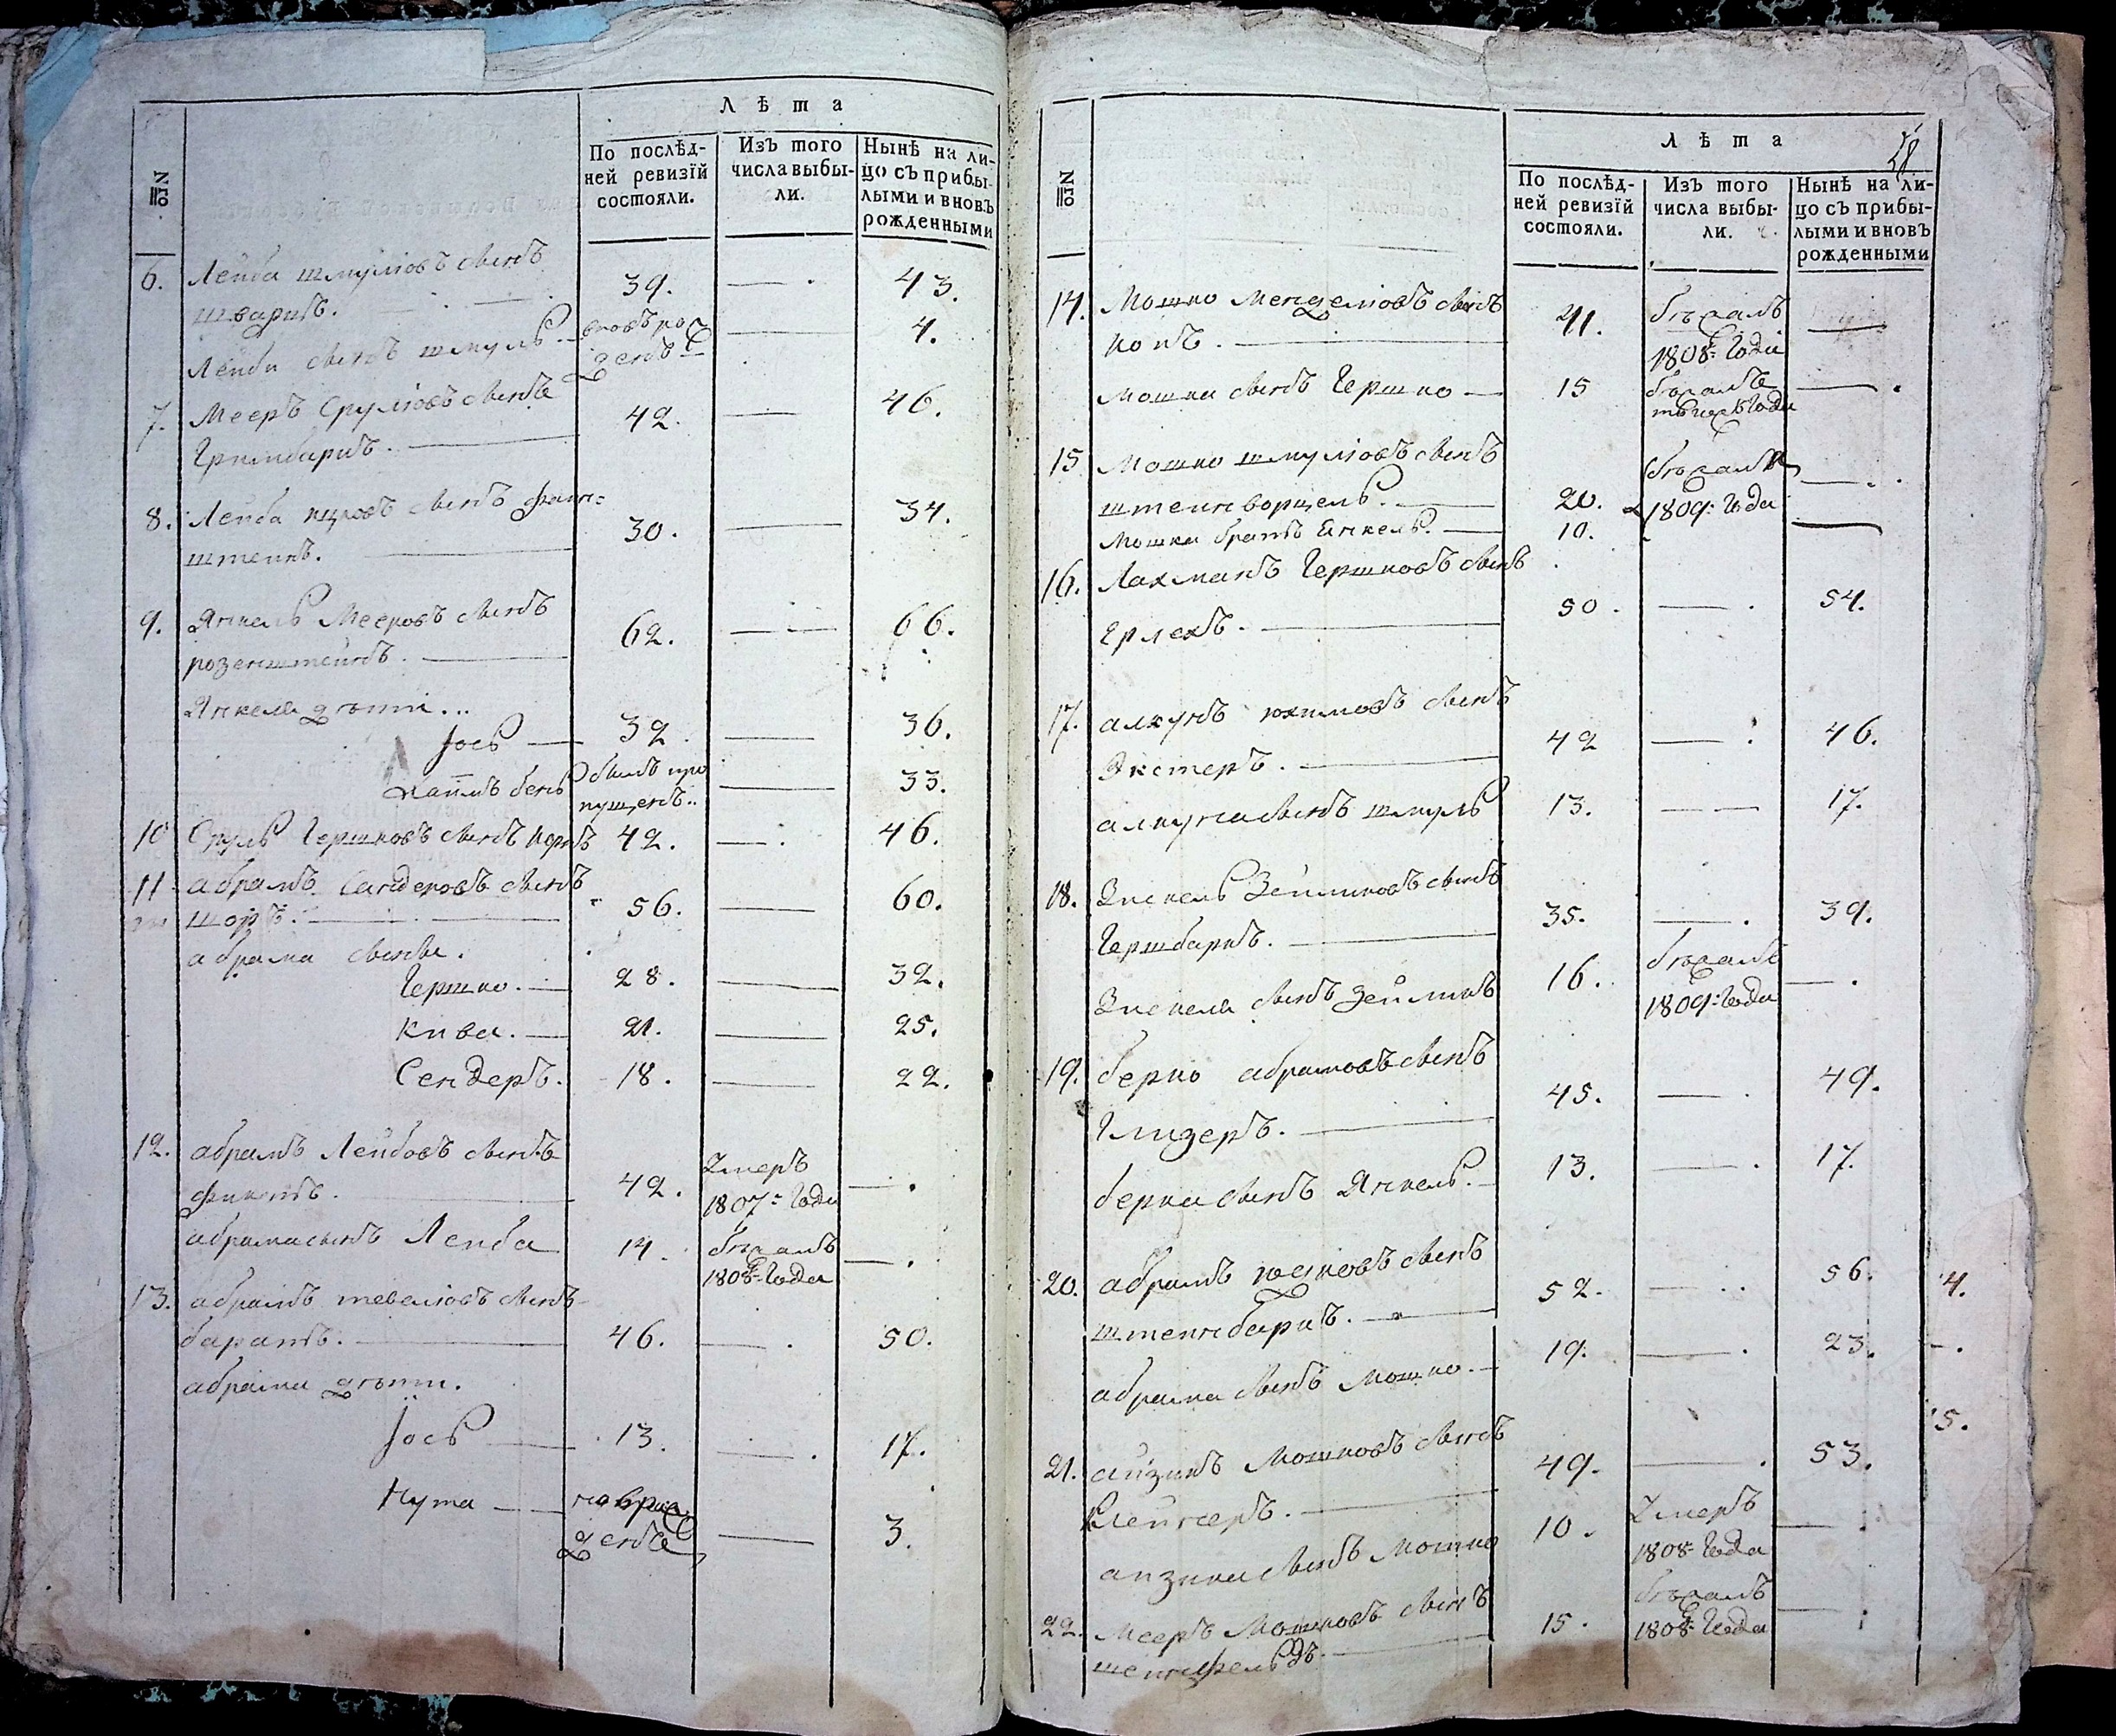 Лѣта
№
По послѣд-
ней ревизїй
состояли.
Изъ того
числа выбы-
ли.
Нынѣ на ли-
цо съ прибы-
лыми и вновь
рожденными
6. Лейба шмулiовъ сынъ
шварцъ. 39. — 43.
Лейбы сынъ шмуль. — 4.
7. Мееръ Срулiовъ сынъ 42. — 46.
Гринбаргъ.
8. Лейба ицковъ сынъ фин-
штеинъ. 30. — 34.
9. Янкель Мееровъ сынъ
розенштейнъ. 62. — 66.
Янкеля дѣти...
Јось — 32. — 36.
Хаимъ бень былъ про
пущенъ.. — 33.
10 Сруль Гершковъ сынъ 42. — 46.
11 абрамъ Сендеровъ сынъ
шоръ. 56. — 60.
абрама сыны.
Гершко. 28. — 32.
Кива. 21. — 25.
Сендеръ. 18. — 22.
12. абрамъ Лейбовъ сынъ
42. Умеръ
1807: Года — .
абрама сынъ Лейба 14. бѣжалъ
1808: Года — .
13. абрамъ тевелiовъ сынъ
баратъ. 46. — 50.
абрама дѣти.
Јось — 13. — 17.
Нута — новорож
денъ — 3.
Лѣта
№
По послѣд-
ней ревизїй
состояли.
Изъ того
числа выбы-
ли.
Нынѣ на ли-
цо съ прибы-
лыми и вновь
рожденными
14. Мошко Менделiовъ сынъ
копъ. 41. бѣжалъ
1808: Года —
Мошка сынъ Гершко — 15 бѣжалъ — .
15 Мошко шмулiовъ сынъ
20. бѣжалъ
1809: Года — .
Мошка братъ Янкель. — 10. —
16. Лахманъ Гершковъ сынъ
Ерлехъ. 50. — 54.
17. алкунъ сынъ
Экстеръ. 42 — 46.
алкуна сынъ шмуль 13. — 17.
18. Зейликовъ сынъ
Гершбаргъ. 35. — 39.
сынъ Зейликъ 16. бѣжалъ
1809: Года — .
19. берко абрамовъ сынъ
Глизеръ. 45. — 49.
берка сынъ Янкель. 13. — 17.
20. абрамъ сынъ
штейнбаргъ. 52. — 56. 4.
абрама сынъ Мошко. — 19. — 23.
5.
21. айзикъ Мошковъ сынъ
Клейнеръ. 49. — 53.
аизика сынъ Мошко 10. Умеръ
1808: Года — .
22. Мееръ Мошковъ сынъ
шенфельдъ. 15. бѣжалъ
1808: Года — .